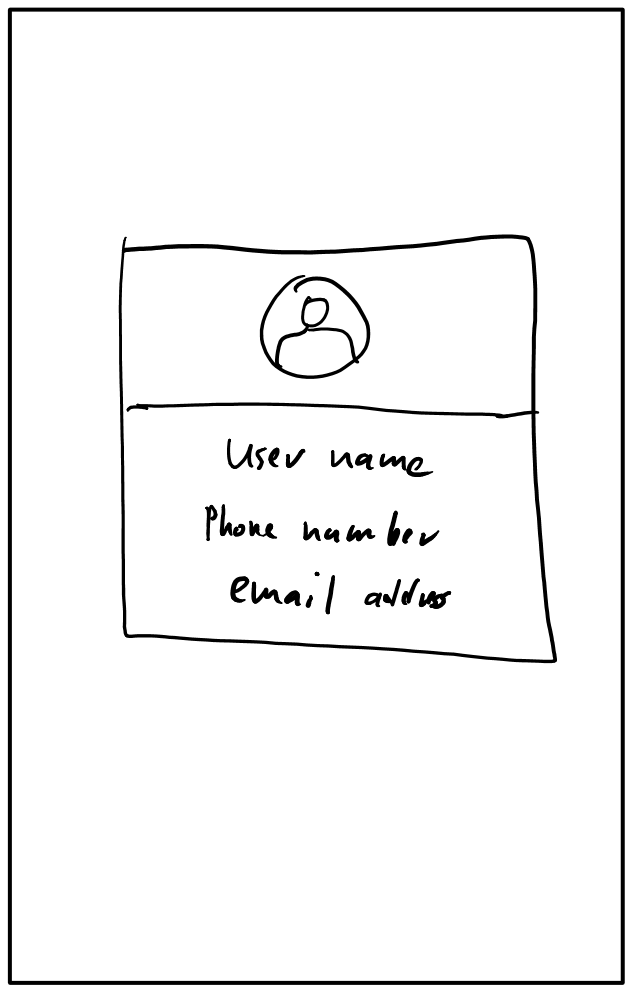 User name
Phone number
email address